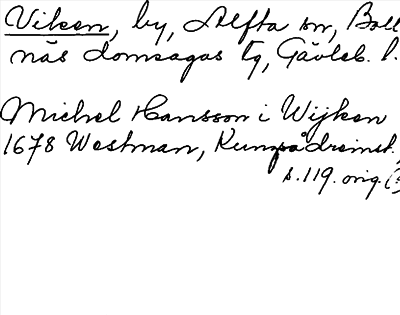 Viken, by, Alfta sn, Boll
näs domsagas tg, Gävleb. l.
Michel Hansson i Wijken
1678 Westman, Kumpådreinst.,
s.119. orig. (